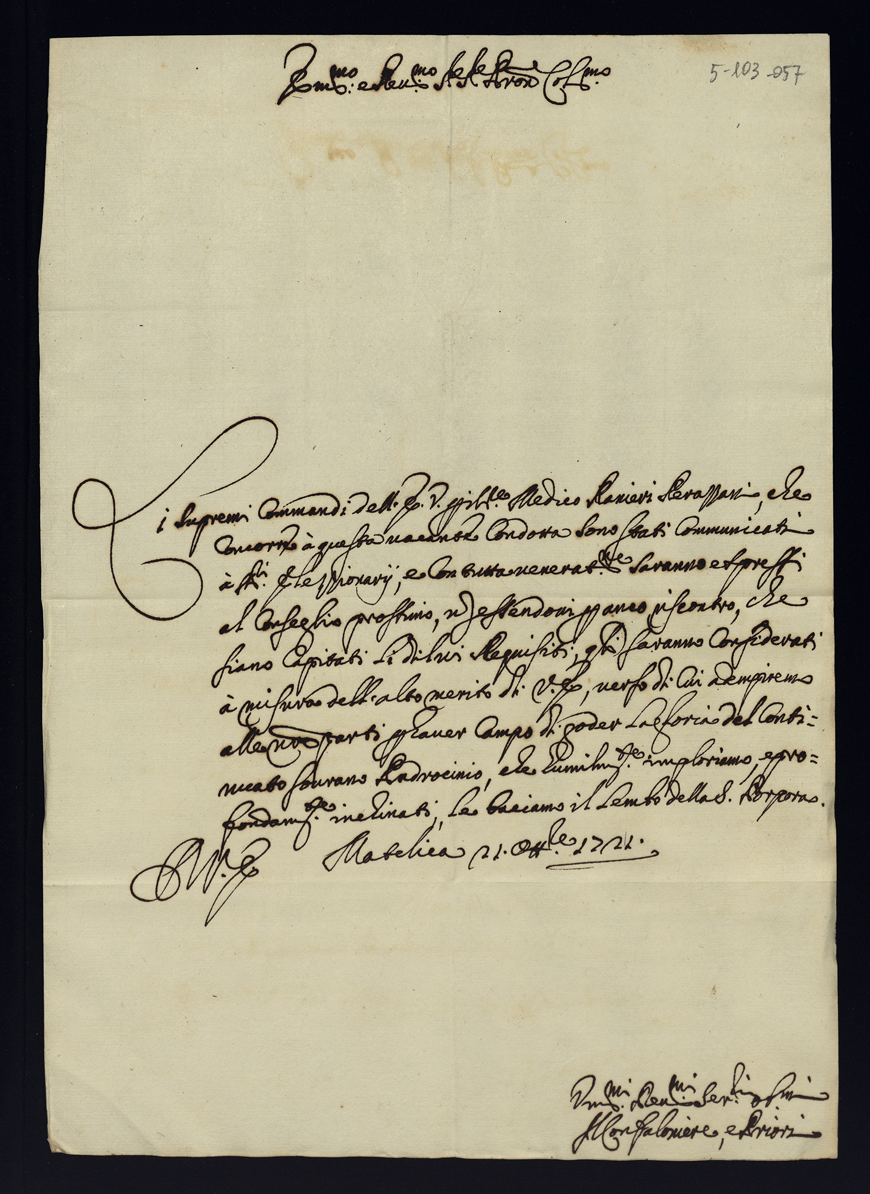 Em.mo e Rev.mo Sig.re Sig.re Pron Col.mo
5-103-057
Li supremi Commandi dell'E. V. ppil Medico Ranieri che
Concorre à questa vacante Condotta sono stati Communicati
à SS.ri e con tutta venerat.ne saranno espressi
al Conseglio prossimo, essendovi riscontro, che
siano Capitati li di lui Requisiti, q.li saranno Considerati
à misura dell'alto merito di V. E., verso di Cui adempiremo
alle nre parti p hauer Campo di poder la gloria del Conti=
nuato sourano Padrocinio, che humilm.te imploriamo, e pro=
fondam.te inclinati, le baciamo il lembo della S. Porpora.
D. V. E. Matelica 21. Ott.re 1721.
Vm.mi Dev.mi Ser.ri
Il Confaloniere, e Priori